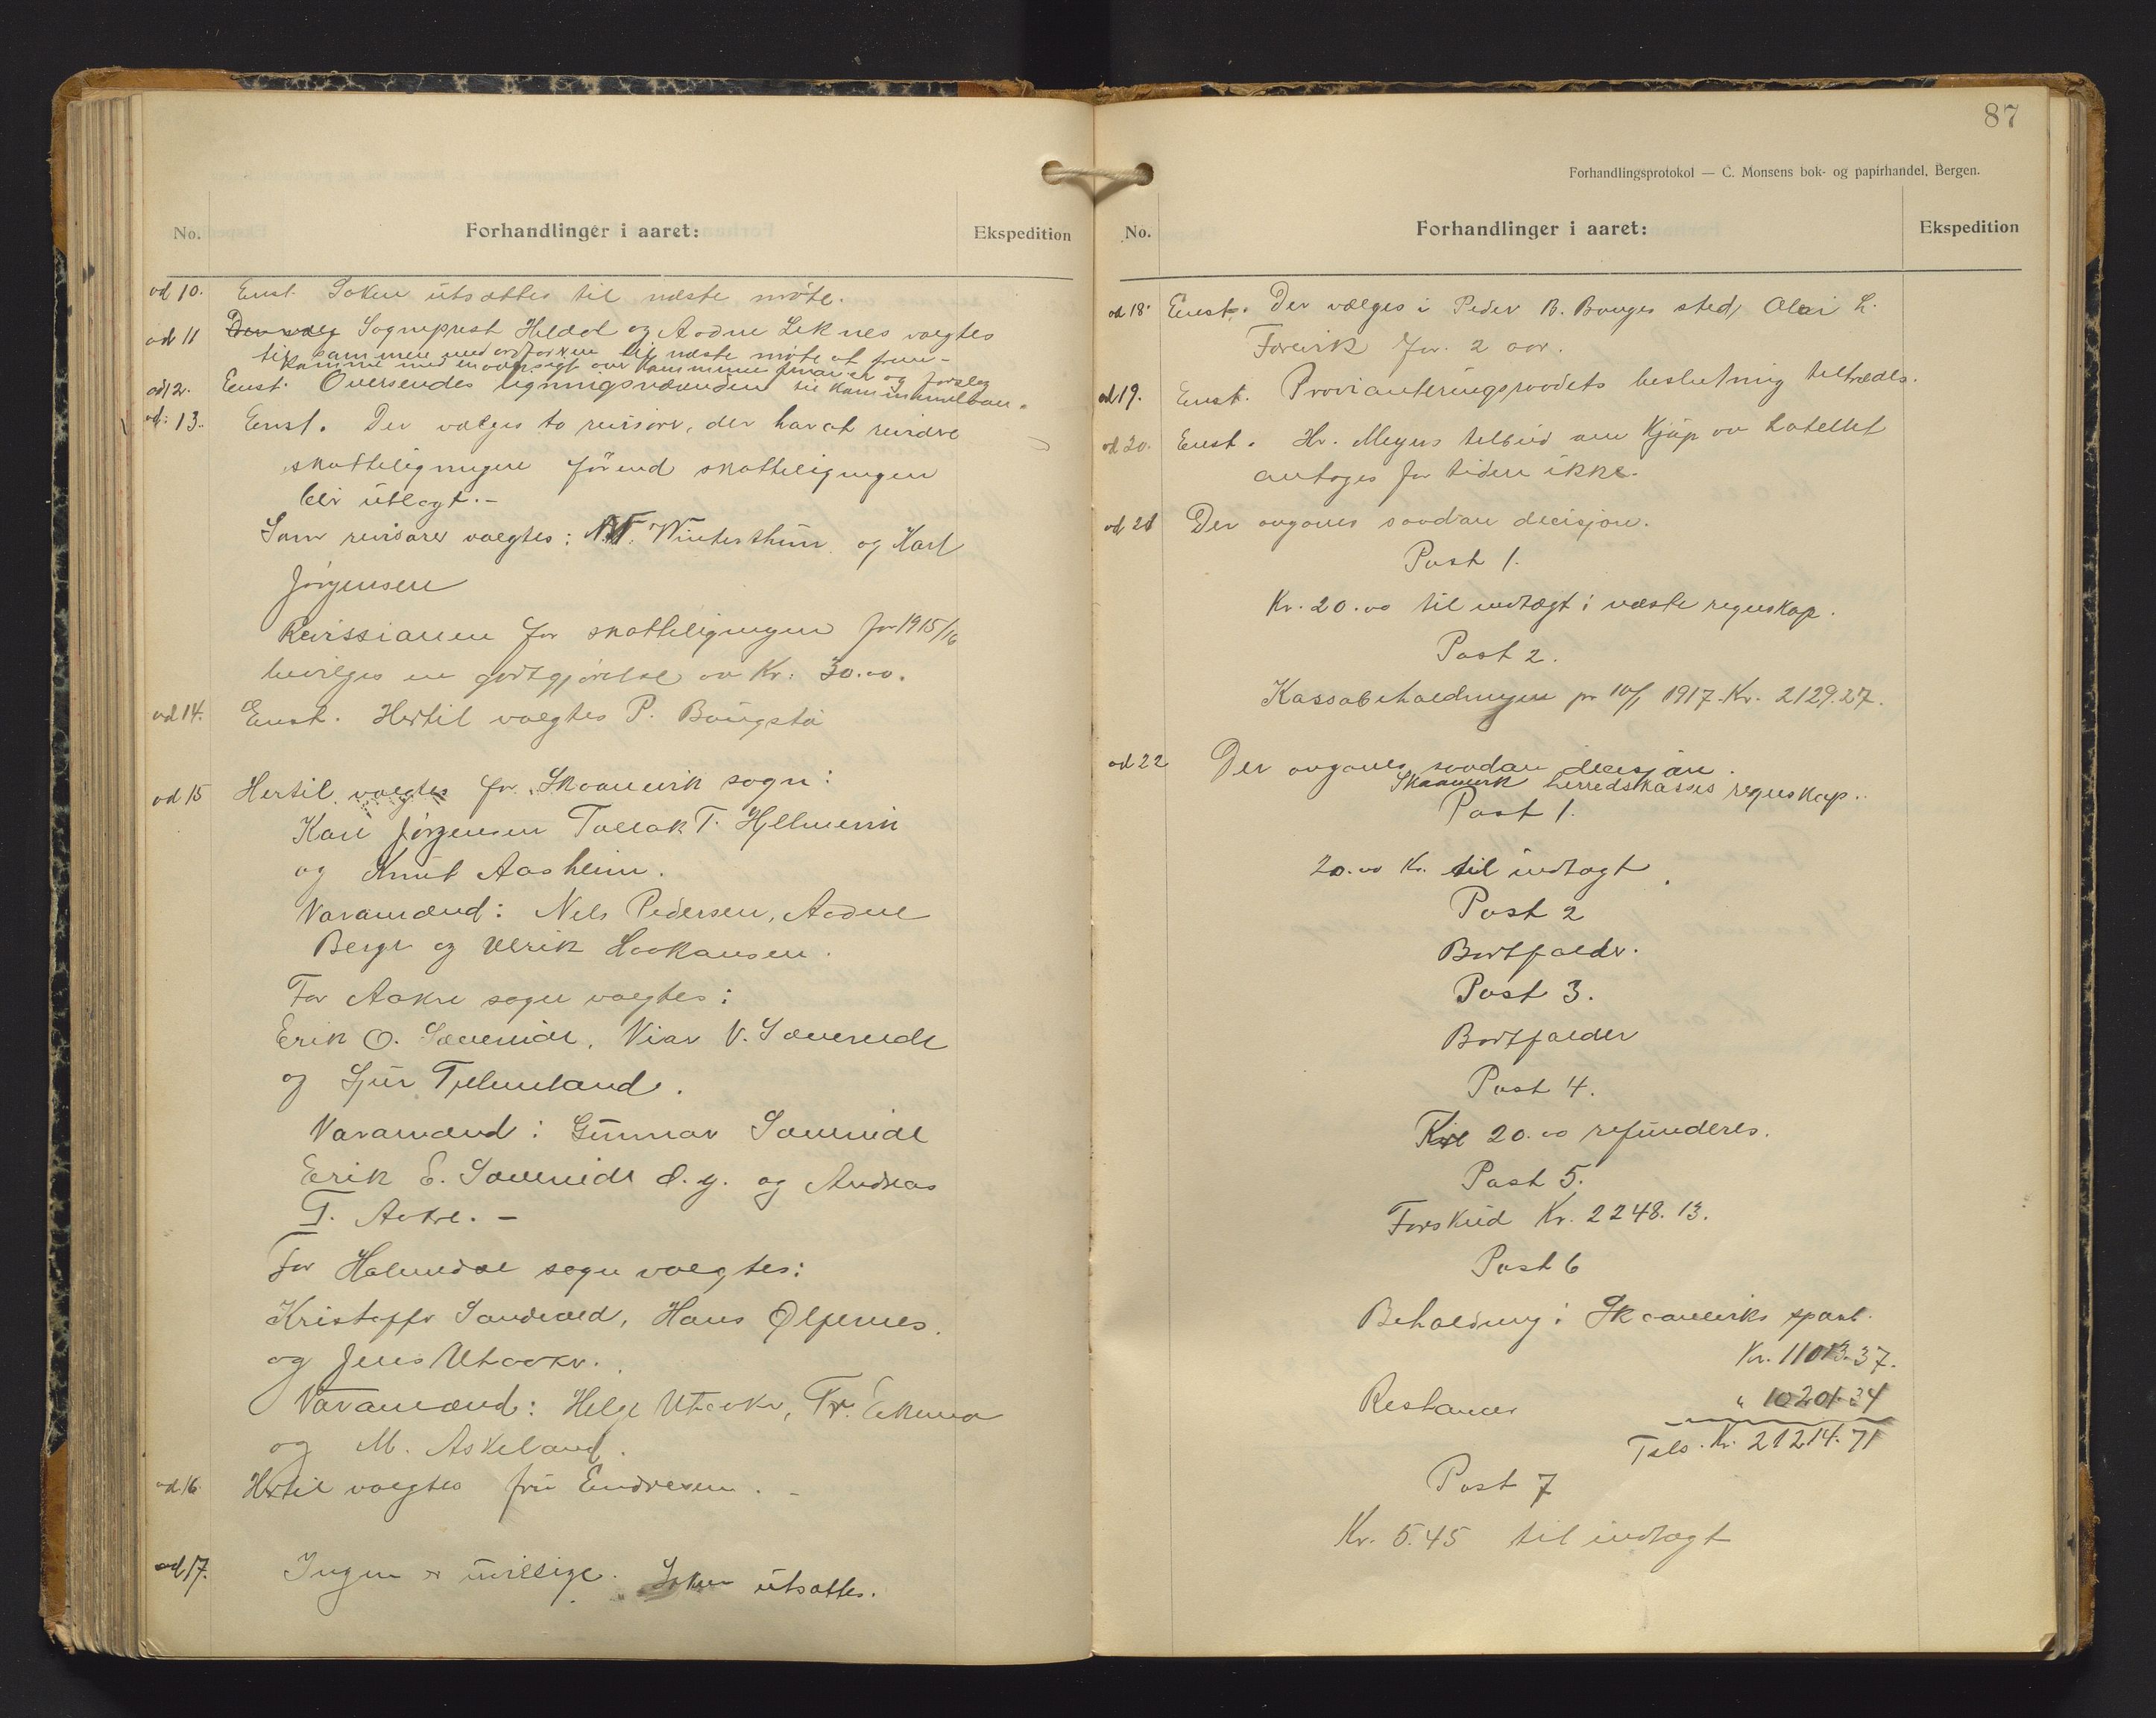 No.
Forhandlinger i aaret:
Ekspedition
ad 10. Enst. Saken utsættes til næste møte.
ad 11 Der valg Sogneprest Heldal og Aadne Leknes valgtes
til sammen med ordføren til næste møte at frem-
komme med en oversigt over kommunens finanser og forslag
ad 12. Enst. Oversendes ligningsnævnden til kommunelaan.
ad. 13. Enst. Der vælges to revisorer, der har at revidre
skatteligningen förend skatteligningen
blir utlagt.-
Som revisorer valgtes: N.T. Winterthun og Karl
Jörgensen
Revissionen for skatteligningen for 1915/16
bevilges en godtgjörelse av Kr. 30.00.
ad 14. Enst. Hertil valgtes P. Baugstö
ad 15 Hertil valgtes for Skaanevik sogn:
Karl Jörgensen Tollak T. Hjelmevik
og Knut Aasheim.
Varamænd: Nels Pedersen, Aadne
Berge og Ulrik Haakansen.
For Aakre sogn valgtes:
Erik O. Sævereide, Viar V. Sævereide
og Sjur Tjelmeland.
Varamænd: Gunnar Sævereide
Erik E. Sævereide d.y. og Andreas
T. Aakre. -
For Holmedal sogn valgtes:
Kristoffer Sandvold, Hans Ølfernes
og Jens Utaaker.
Varamænd: Helge Utaaker, Fr. Eknes
og M. Askeland.
ad 16. Hertil valgtes fru Endresen. -
ad 17. Ingen er uvillige. Saken utsættes.
87
Forhandlingsprotokol — C. Monsens bok- og papirhandel, Bergen.
No.
Forhandlinger i aaret:
Ekspedition
ad 18. Enst. Der vælges i Peder B. Bauges sted, Olai L.
Farevik for 2 aar.
ad 19. Enst. Provianteringsraadets beslutning tiltrædes.
ad 20. Enst. Hr. Meyers tilbud om Kjöp av hotellet
antages for tiden ikke.
ad 21 Der avgaves saadan decisjon.
Post 1.
Kr. 20.00 til indtægt i næste regnskap.
Post 2.
Kassabeholdningen pr 10/1 1917. Kr. 2129.27.
ad 22 Der avgaves saadan decisjon.
Skaanevik herredskasses regnskap.
Post 1.
20.00 Kr. til indtægt.
Post 2
Bortfalder.
Post 3.
Bortfalder
Post 4.
Kr 20.00 refunderes.
Post 5.
Forskud Kr. 2248.13.
Post 6
Beholdning i Skaaneviks sparb.
Kr. 11013.37.
Restancer " 10201.34
Tils. Kr. 21214.71
Post 7
Kr. 5.45 til indtægt